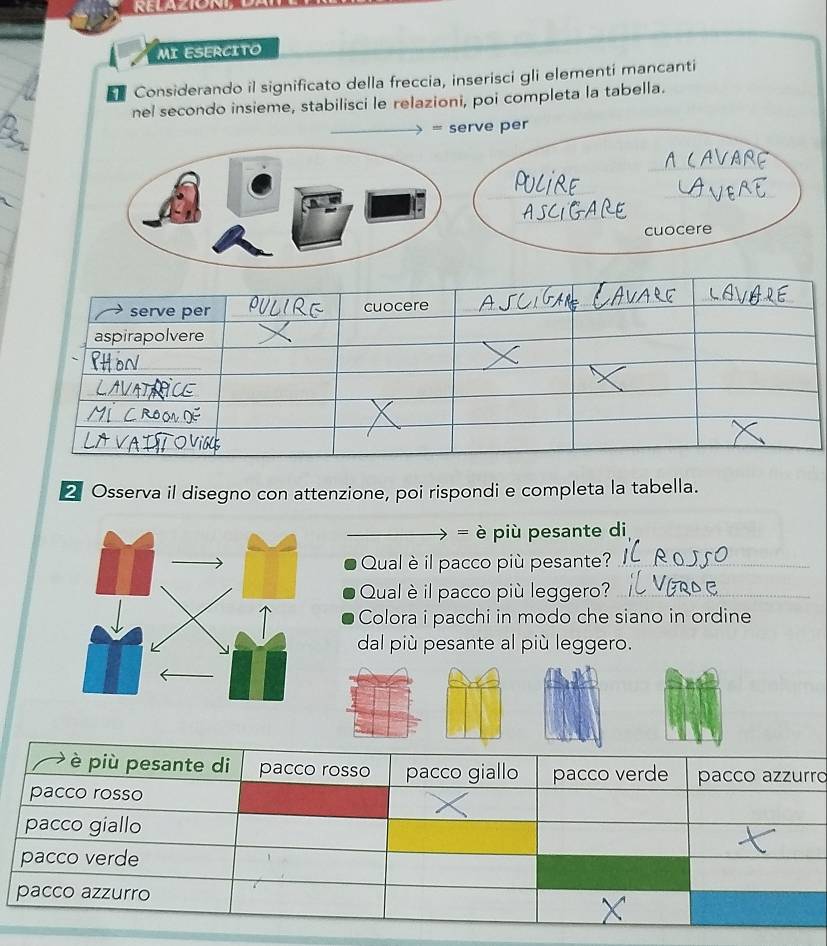 RELAZIONI,
MI ESERCITO
1 Considerando il significato della freccia, inserisci gli elementi mancanti
nel secondo insieme, stabilisci le relazioni, poi completa la tabella.
= serve per
A LAVARE
PULIRE LAVERE
ASCIGARE
cuocere
serve per PULIRE cuocere ASCIGARE LAVARE LAVARE
aspirapolvere X
PHON X
LAVATRICE X
MICROONDE X
LAVAISTOVIGLE X
2 Osserva il disegno con attenzione, poi rispondi e completa la tabella.
= è più pesante di
Qual è il pacco più pesante? IL ROSSO
Qual è il pacco più leggero? IL VERDE
Colora i pacchi in modo che siano in ordine
dal più pesante al più leggero.
è più pesante di pacco rosso pacco giallo pacco verde pacco azzurro
pacco rosso X
pacco giallo X
pacco verde
pacco azzurro X